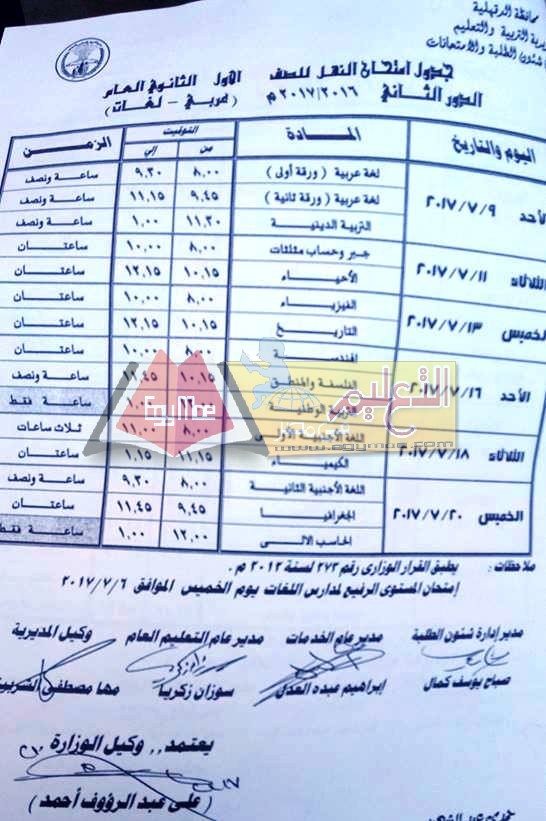 محافظة الدقهلية
مديرية التربية والتعليم
شئون الطلبة والامتحانات
جدول امتحان النقل للصف الأول الثانوي العام
الدور الثاني ٢٠١٧/٢٠١٦ م (عربي - لغات)
اليوم والتاريخ المادة التوقيت الزمن
من إلى
الأحد ٢٠١٧/٧/٩
لغة عربية (ورقة أولى) ٨,٠٠ ٩,٣٠ ساعة ونصف
لغة عربية (ورقة ثانية) ٩,٤٥ ١١,١٥ ساعة ونصف
التربية الدينية ١١,٣٠ ١,٠٠ ساعة ونصف
الثلاثاء ٢٠١٧/٧/١١
جبر وحساب مثلثات ٨,٠٠ ١٠,٠٠ ساعتان
الأحياء ١٠,١٥ ١٢,١٥ ساعتان
الخميس ٢٠١٧/٧/١٣
الفيزياء ٨,٠٠ ١٠,٠٠ ساعتان
التاريخ ١٠,١٥ ١٢,١٥ ساعتان
الأحد ٢٠١٧/٧/١٦
هندسة ٨,٠٠ ١٠,٠٠ ساعتان
الفلسفة والمنطق ١٠,١٥ ساعة ونصف
التربية الوطنية ساعة فقط
الثلاثاء ٢٠١٧/٧/١٨
اللغة الأجنبية الأولى ٨,٠٠ ١١,٠٠ ثلاث ساعات
الكيمياء ١١,١٥ ١,١٥ ساعتان
الخميس ٢٠١٧/٧/٢٠
اللغة الأجنبية الثانية ٨,٠٠ ٩,٣٠ ساعة ونصف
الجغرافيا ٩,٤٥ ١١,٤٥ ساعتان
الحاسب الآلى ١٢,٠٠ ١,٠٠ ساعة فقط
التعليم
EgyMoe
www.egymoe.com
ملاحظات : يطبق القرار الوزارى رقم ٢٧٣ لسنة ٢٠١٢ م .
إمتحان المستوى الرفيع لمدارس اللغات يوم الخميس الموافق ٢٠١٧/٧/٦
مدير إدارة شئون الطلبة مدير عام الخدمات مدير عام التعليم العام وكيل المديرية
صباح يوسف كمال إبراهيم عبده العدل سوزان زكريا مها مصطفى الشربيني
يعتمد,, وكيل الوزارة
(على عبد الرؤوف أحمد)